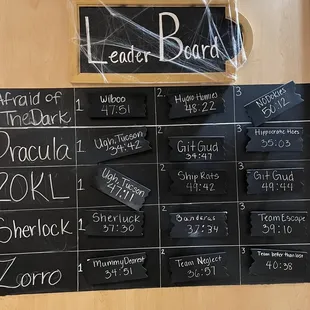 Leader Board
Afraid of The Dark
1 Wilboo 47:51
2 Hydro Homies 48:22
3 No Dokies 50:12
Dracula
1 Ugh, Tucson 34:42
2 Git Gud 34:47
3 Hippocratic Hoes 35:03
ZOKL
1 Ugh, Tucson 47:11
2 Ship Rats 49:42
3 Git Gud 49:44
Sherlock
1 Sherluck 37:30
2 Banderas 37:34
3 Team Escape 39:10
Zorro
1 Mummy Dearest 34:51
2 Team Neglect 36:57
3 Team better than last 40:38